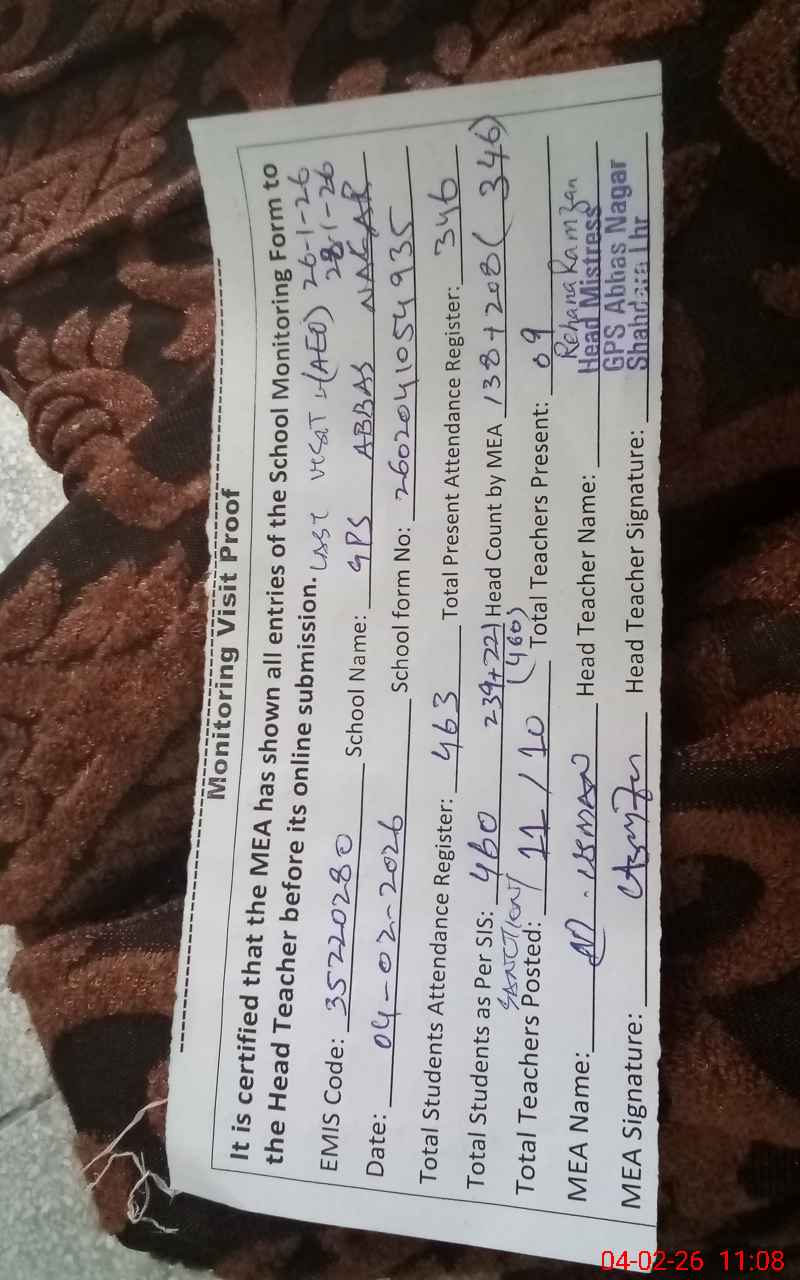 Monitoring Visit Proof
It is certified that the MEA has shown all entries of the School Monitoring Form to
the Head Teacher before its online submission. LAST VISIT (AEO) 26-1-26
28-1-26
EMIS Code: 35220280 School Name: GPS ABBAS NAGAR
Date: 04-02-2026 School form No: 2602041054935
Total Students Attendance Register: 463 Total Present Attendance Register: 346
Total Students as Per SIS: 460 239+221 (460) Head Count by MEA 138+208 (346)
SANCTION/
Total Teachers Posted: 11/10 Total Teachers Present: 09
MEA Name: M. USMAN Head Teacher Name: Rehana Ramzan
MEA Signature: Head Teacher Signature:
Head Mistress
GPS Abbas Nagar
Shahdara Lhr
04-02-26 11:08